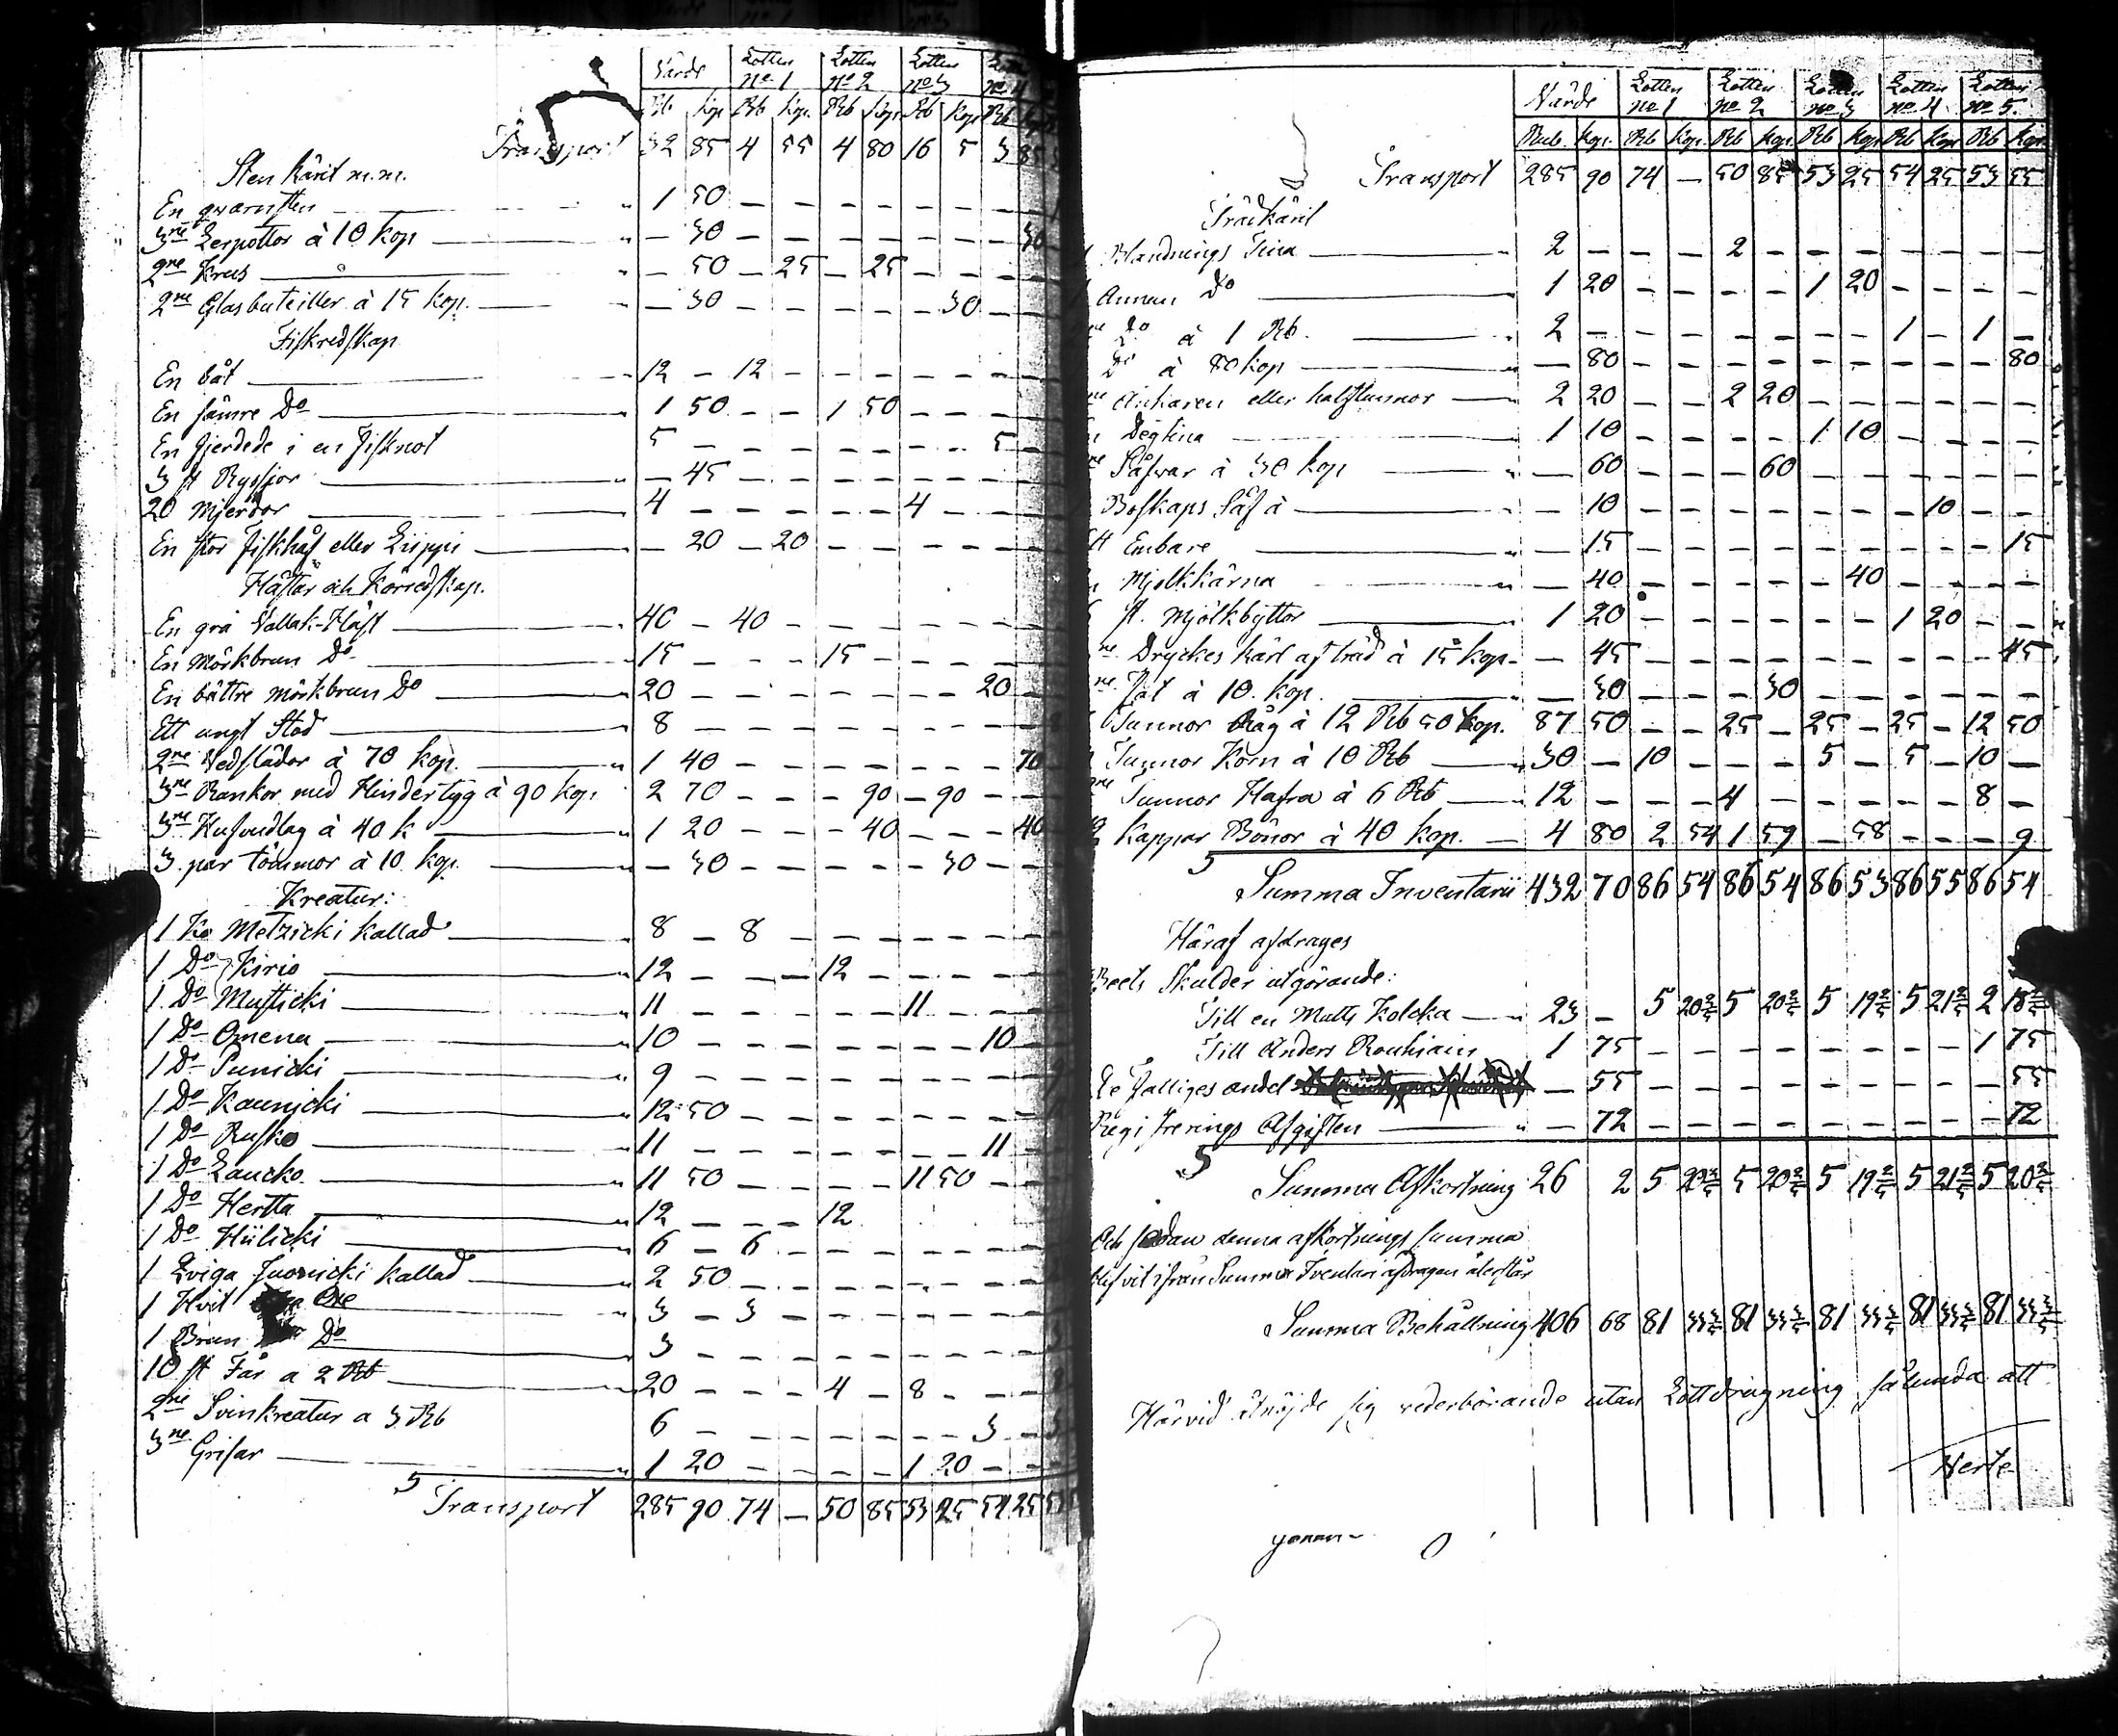 Värde Lotten No 1 Lotten No 2 Lotten No 3 No 4
Rb Kop Rb Kop. Rb Kop Rb Kop Rb
Transport 32 85 4 55 4 80 16 5 3 85
Sten käril m.m.
En qvarnsten 1 50 — — — — — — — —
3ne Lerpottor à 10 Kop — 30 — — — — — — — 30
2ne Krus — 50 — 25 — 25 — — — —
2ne Glasbuteiller à 15 Kop. — 30 — — — — — 30 — —
Fiskredskap
En båt 12 — 12 — — — — — — —
En sämre Do 1 50 — — 1 50 — — — —
En fjerdede i en fisknot 5 — — — — — — — 5 —
3 st Ryssjor — 45 — — — — — — — —
20 Mjerdar 4 — — — — — 4 — — —
En stor fiskhåf eller Lippi — 20 — 20 — — — — — —
Hästar och Köredskap.
En grå Vallak-Häst 40 — 40 — — — — — — —
En Mörkbrun Do 15 — — — 15 — — — — —
En bättre mörkbrun Do 20 — — — — — — — 20 —
Ett ungt Stod 8 — — — — — — — — — 8
2ne Vedslädor à 70 kop. 1 40 — — — — — — — 70
3ne Rankor med Hindertyg à 90 kop. 2 70 — — — 90 — 90 — —
3ne à 40 k 1 20 — — — 40 — — — 40
3 par tömmor à 10 kop. — 30 — — — — — 30 — —
Kreatur:
1 Ko Metzicki kallad 8 — 8 — — — — — — —
1 Do Kirio 12 — — — 12 — — — — —
1 Do Musticki 11 — — — — — 11 — — —
1 Do Omena 10 — — — — — — — 10 —
1 Do Punicki 9 — — — — — — — — —
1 Do Kaunicki 12 50 — — — — — — — —
1 Do Rusko 11 — — — — — — — 11 —
1 Do Laucko 11 50 — — — — 11 50 — —
1 Do Hertta 12 — — — 12
1 Do Hiilicki 6 — 6 — — — — — — —
1 Qviga Juonicki kallad 2 50 — — — — — — — —
1 Hvit Oxe 3 — 3 — — — — — — —
1 Brun Do 3 — — — — — — — — —
10 st Får a 2 Rb 20 — — — 4 — 8 — — —
2ne Svinkreatur a 3 Rb 6 — — — — — — — 3 — 3
3ne Grisar 1 20 — — — — 1 20 — —
5 Transport 285 90 74 — 50 85 53 25 54 25
Värde Lotten No 1 Lotten No 2 Lotten No 3 Lotten No 4 Lotten No 5.
Rub. Kop. Rb Kop. Rb Kop. Rb Kop Rb Kop Rb Kop.
Transport 285 90 74 — 50 85 53 25 54 25 53 55
Trädkäril
Blandnings Tina 2 — — — 2 — — — — — — —
Annan Do 1 20 — — — — 1 20 — — — —
Do à 1 Rb. 2 — — — — — — — 1 — 1 —
Do à 80 kop — 80 — — — — — — — — — 80
Ankaren eller halftunnor 2 20 — — 2 20 — — — — — —
Degtina 1 10 — — — — 1 10 — — — —
Såfvar à 30 kop — 60 — — — 60 — — — — — —
Boskaps Såf à — 10 — — — — — — — 10 — —
Embare — 15 — — — — — — — — — 15
Mjolkkärna — 40 — — — — — 40 — — — —
st. Mjölkbyttor 1 20 — — — — — — 1 20 — —
Dryckes kärl af träd à 15 kop. — 45 — — — — — — — — — 45
Fat à 10 kop. — 30 — — — 30 — — — — — —
Tunnor Råg à 12 Rb 50 kop. 87 50 — — 25 — 25 — 25 — 12 50
Tunnor Korn à 10 Rb 30 — 10 — — — 5 — 5 — 10 —
Tunnor Hafra à 6 Rb 12 — — — 4 — — — — — 8 —
Kappar Bönor à 40 kop. 4 80 2 54 1 59 — 58 — — — 9
5 Summa Inventarii 432 70 86 54 86 54 86 53 86 55 86 54
Häraf afdrages
Skulder utgörande:
Till en Matts Kolcka 23 — 5 20 2/5 5 20 2/5 5 19 2/5 5 21 2/5 2 18 2/5
Till Anders Rouhiain 1 75 — — — — — — — — 1 75
Fattiges andel — 55 — — — — — — — — — 55
Registrerings Afgiften — 72 — — — — — — — — — 72
5 Summa Afkortning 26 2 5 20 2/5 5 20 2/5 5 19 2/5 5 21 2/5 5 20 2/5
Och sedan denna afkortnings summa
blifvit ifrån Summa Iventari afdragen återstår
Summa Behållning 406 68 81 33 3/5 81 33 3/5 81 33 3/5 81 33 3/5 81 33 3/5
Härvid åtnöjde sig vederbörande utan Lottdragning sålunda att